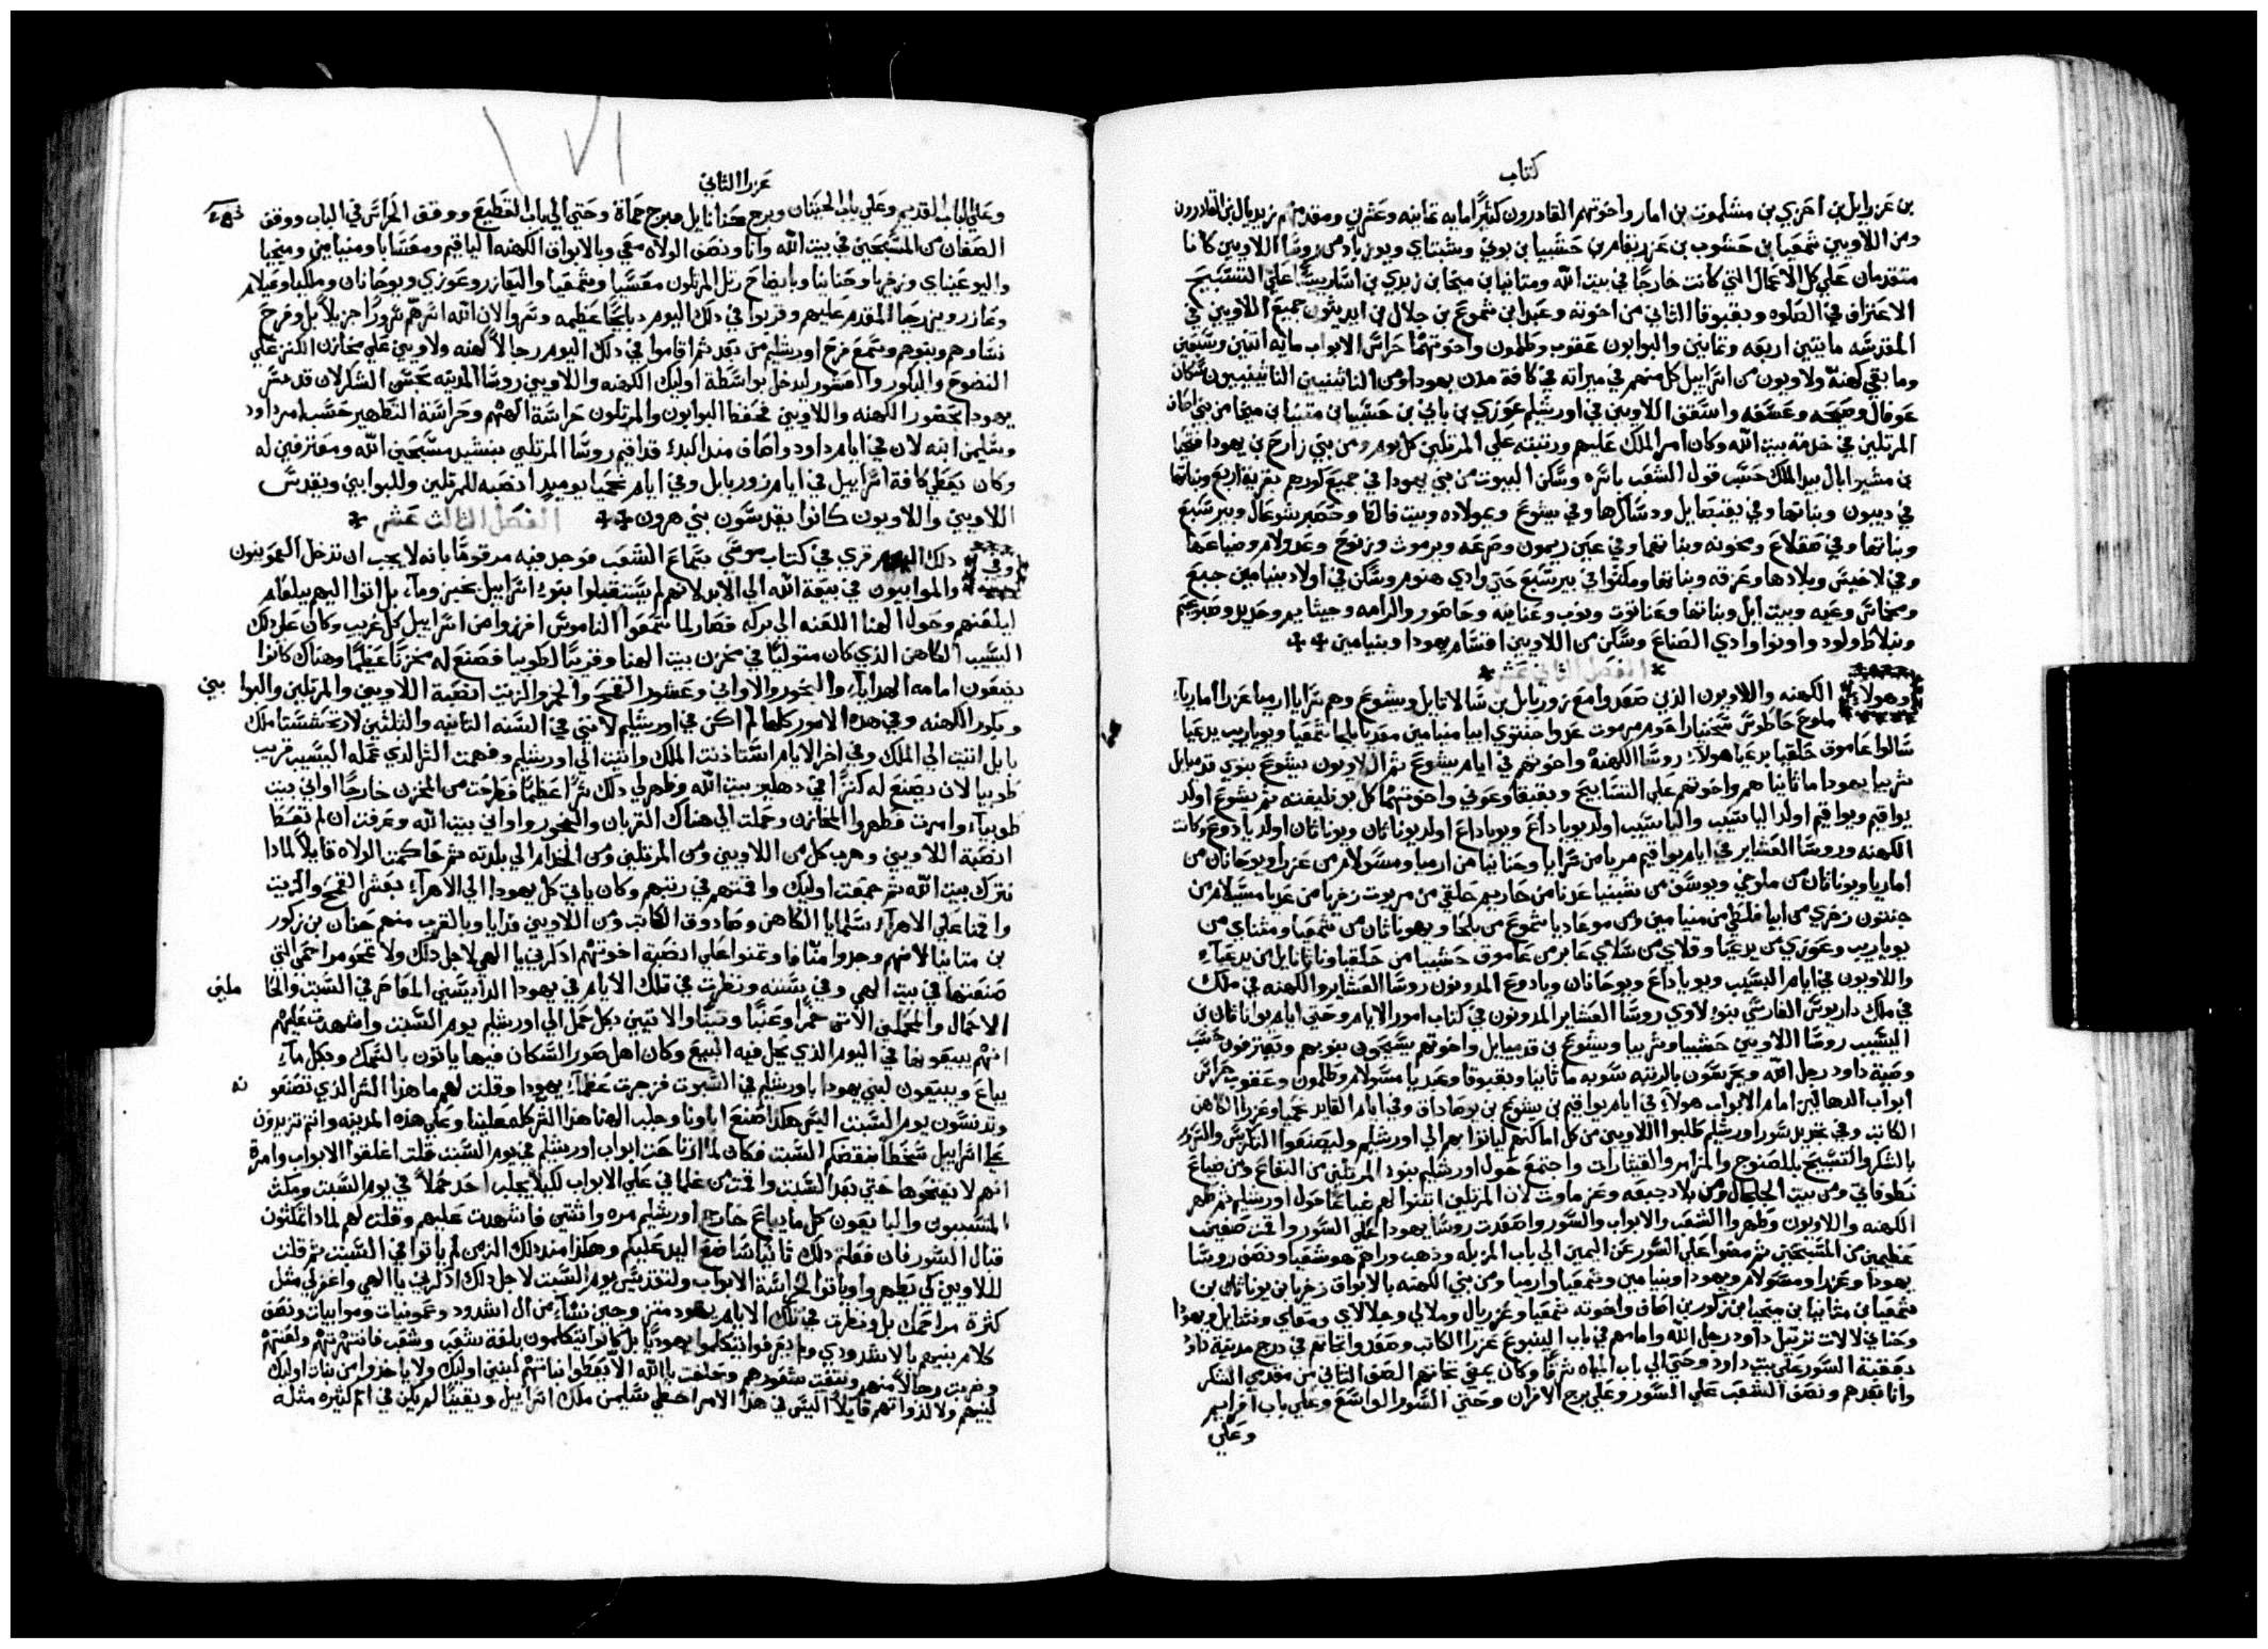 كتاب
بن عزرايل بن احزي بن مشلموت بن امار واخوتهم القادرون كثيرًا مايه ثمانيه وعشرين ومقدمهم زبديال بن القادرون
ومن اللاويين شمعيا بن حشوب بن عزريقام بن حشبيا بن بوني وشبتاي ويوزباد من روسا اللاويين كانا
متقدمان علي كل الاعمال التي كانت خارجًا في بيت الله ومتانيا بن ميخا بن زبدي بن اساف رييسًا علي التسبيح
الاعتراف في الصلوه وبقبوقا الثاني من اخوته وعبدا بن شموع بن جلال بن ايديثون جميع اللاويين في
المقدسه مايتين اربعه وثمانين والبوابون عقوب وطلمون واخوتهما حراس الابواب مايه اثنين وسبعين
وما بقي كهنة ولاويون من اسراييل كل منهم في ميراثه في كافة مدن يهودا ومن الناثينيين الناثينييون سكان
عوفال وصيحه وعسفه واسقف اللاويين في اورشليم عوزي بن باني بن حشبيا بن متنيا بن ميخا من بني اصاف
المرتلين في خدمة بيت الله وكان امر الملك عليهم ورتبته علي المرتلين كل يوم ومن بني زارح بن يهودا فتحيا
بن مشيزابال بيد الملك حسب قول الشعب باسره وسكن البيوت من بني يهودا في جميع كورهم بقرية اربع وبناتها
في ديبون وبناتها وفي يقبصايل ودساكرها وفي يشوع وبمولاده وبيت فالط وحصر شوعال وبير سبع
وبناتها وفي صقلاع ومخونه وبناتها وفي عين ريمون وصرعه ويرموث وزنوح وعدولام وضياعها
وفي لاخيش وبلادها وعزقه وبناتها ومكثوا في بير سبع حتي وادي هنوم وسكن في اولاد بنيامين جبع
ومخماس وعيه وبيت ايل وبناتها وعناتوت ونوب وعنانيه وحاصور والرامه وجيثايم وحديد وصبوعيم
ونبلاط ولود واونوا وادي الصناع وسكن من اللاويين اقسام يهودا وبنيامين
الفصل الثاني عشر
وهولاء الكهنه واللاويون الذين صعدوا مع زوربابل بن شالاتايل ويشوع وهم سرايا ارميا عزرا اماريا
ملوخ حاطوش شخنيا راحوم مرموت عدوا جنتوي ابيا ميامين معديا بلجا شمعيا ويوياريب يدعيا
سالوا عاموق خلقيا يدعيا هولاء روسا الكهنة واخوتهم في ايام يشوع ثم اللاويون يشوع بنوي قدميايل
شربيا يهودا ماثانيا هم واخوتهم علي التسابيح وبقبقا وعوني واخوتهما كل بوظيفته ثم يشوع اولد
يواقيم ويواقيم اولد الياشيب والياشيب اولد يوياداع ويوياداع اولد يوناثان ويوناثان اولد يادوع وكانت
الكهنه وروسا العشاير في ايام يواقيم مريا من سرايا وحنانيا من ارميا ومسولام من عزرا ويوحانان من
اماريا ويوناثان من ملوخي ويوسف من شبنيا عدنا من حاريم حلقي من مريوت زخريا من عديا مسلام من
جنتون زخري من ابيا فلطي من منيامين ومن موعاديا شموع من بلجا ويهوناثان من شمعيا ومتناي من
يوياريب وعوزي من يدعيا وقلاي من سلاي عابر من عاموق حشبيا من حلقيا ونثانايل من يدعياء
واللاويون في ايام اليشيب ويوياداع ويوحانان ويادوع المدونون روسا العشاير والكهنه في ملك
في ملك داريوش الفارسي بنو لاوي روسا العشاير المدونون في كتاب امور الايام وحتي ايام يوناثان بن
اليشيب روسا اللاويين حشبيا وشربيا ويشوع بن قدميايل واخوتهم يسبحون بنوبهم ويعترفون حسب
وصية داود رجل الله ويحرسون بالرتبه سويه ماثانيا وبقبوقا وعبديا مسولام وطلمون وعقوب حراس
ابواب الدهاليز امام الابواب هولاء في ايام يواقيم بن يشوع بن يوصاداق وفي ايام القايد نحميا وعزرا الكاهن
الكاتب وفي تجديد سور اورشليم طلبوا اللاويين من كل اماكنهم لياتوا بهم الي اورشليم وليصنعوا التكريس والسرور
بالشكر والتسبيح بالصنوج والمزامير والقيثارات واجتمع حول اورشليم بنو المرتلين من البقاع ومن ضياع
نطوفاتي ومن بيت الجلجال ومن بلاد جبعه وعزماوت لان المرتلين ابتنوا لهم ضياعًا حول اورشليم ثم طهر
الكهنه واللاويون وطهروا الشعب والابواب والسور واصعدت روسا يهودا علي السور واقمت صفين
عظيمين من المسبحين ثم مضوا علي السور عن اليمين الي باب المزبله وذهب وراهم هوشعيا ونصف روسا
يهودا وعزرا ومسولام ويهودا وبنيامين وشمعيا وارميا ومن بني الكهنه بالابواق زخريا بن يوناثان بن
شمعيا بن متانيا بن ميخيا بن زكور بن اصاف واخوته شمعيا وعزريال وملالي وجلالاي ومعاي ونثنايل ويهودا
وحناني لالات ترتيل داود رجل الله وامامهم في باب الينبوع عزرا الكاتب وصعدوا تجاههم في درج مدينة داود
بعقبة السور علي بيت داود وحتي الي باب المياه شرقًا وكان يمضي تجاههم الصف الثاني من مقدمي الشكر
وانا بعدهم ونصف الشعب علي السور وعلي برج الافران وحتي السور الواسع وعلي باب افراييم
وعلي
عزرا الثاني
وعلي الباب القديم وعلي باب الحيتان وبرج حنانايل وبرج حماة وحتي الي باب القطيع ووقف الحراس في الباب ووقف
الصفان من المسبحين في بيت الله وانا ونصف الولاه معي وبالابواق الكهنه الياقيم ومعسايا ومنيامين وميخيا
واليوعيناي وزخريا وحنانيا وبايضاح رتل المرتلون معسيا وشمعيا واليعازر وعوزي ويوحانان وملكيا وعيلام
وعازر ويزرحيا المقدم عليهم وقربوا في ذلك اليوم دبايحًا عظيمه وسروا لان الله اسرهم سرورًا جزيلاً بل وفرح
نساوهم وبنوهم وسمع فرح اورشليم من بعد ثم اقاموا في ذلك اليوم رجالاً كهنه ولاويين علي مخازن الكنز علي
النضوح والبكور والعشور ليدخل بواسطة اوليك الكهنه واللاويين روسا المدينه بحسن الشكر لان قد سر
يهودا بحضور الكهنه واللاويين فحفظ البوابون والمرتلون حراسة الههم وحراسة التطهير حسب امر داود
وسليمن ابنه لان في ايام داود واصاف منذ البدء قد اقيم روسا المرتلين بنشيد مسبحين الله ومعترفين له
وكان يعطي كافة اسراييل في ايام زوربابل وفي ايام نحميا يوميدٍ انصبه للمرتلين وللبوابين ويقدس
اللاويين واللاويون كانوا يقدسون بني هرون الفصل الثالث عشر
وفي ذلك اليوم قري في كتاب موسي بسماع الشعب فوجد فيه مرقومًا بانه لا يجب ان تدخل العمونيون
والموابيون في بيعة الله الي الابد لانهم لم يستقبلوا بنو اسراييل بخبز وماء بل اتوا اليهم ببلعام
ليلعنهم وحول الهنا اللعنه الي بركه فصار لما سمعوا الناموس افرزوا من اسراييل كل غريب وكان علي ذلك
اليشيب الكاهن الذي كان متوليًا في مخزن بيت الهنا وقريبًا لطوبيا فصنع له مخزنًا عظيمًا وهناك كانوا
يضعون امامه الهدايا والبخور والاواني وعشور القمح والخمر والزيت انصبة اللاويين والمرتلين والبوا بين
وبكور الكهنه وفي هذه الامور كلها لم اكن في اورشليم لانني في السنه الثانيه والثلثين لارتحشستا ملك
بابل اتيت الي الملك وفي اخر الايام استاذنت الملك واتيت الي اورشليم وفهمت الشر الذي عمله اليشيب قريب
طوبيا لان يصنع له كنزًا في دهليز بيت الله وظهر لي ذلك شرًا عظيمًا فطرحت من المخزن خارجًا اواني بيت
طوبياء وامرت فطهروا المخازن وحملت الي هناك القربان والبخور واواني بيت الله وعرفت ان لم تعطا
انصبة اللاويين وهرب كل من اللاويين ومن المرتلين ومن الخدام الي بلدته ثم حاكمت الولاه قايلاً لماذا
نترك بيت الله ثم جمعت اوليك واقمتهم في رتبهم وكان ياتي كل يهودا الي الاهراء بعشر القمح والزيت
واقمنا علي الاهراء سلمايا الكاهن وصادوق الكاتب ومن اللاويين فدايا وبالقرب منهم حنان بن زكور
بن متانيا لانهم وجدوا منافا وتمنوا علي انصبة اخوتهم اذكرني يا الهي لاجل ذلك ولا تمحو مراحمي التي
صنعتها في بيت الهي وفي سننه ونظرت في تلك الايام في يهودا الدايسين المعاصر في السبت والحا ملين
الاحمال والمحملين الاتن خمرًا وعنبًا وتينًا والاتيين بكل حمل الي اورشليم يوم السبت واشهدت عليهم
انهم يبيعونها في اليوم الذي يحل فيه البيع وكان اهل صور السكان فيها ياتون بالسمك وبكل ما
يباع ويبيعون لبني يهودا باورشليم في السبوت فزجرت عظماء يهودا وقلت لهم ما هذا الشر الذي تصنعو نه
وتدنسون يوم السبت اليس هكذا صنع اباونا وجلب الهنا هذا الشر كله علينا وعلي هذه المدينه وانتم تزيدون
علي اسراييل سخطًا بنقضكم السبت فكان لما ارتاحت ابواب اورشليم في يوم السبت قلت اغلقوا الابواب وامرت
انهم لا يفتحوها حتي بعد السبت واقمت من غلماني علي الابواب لكيلا يجلب احد حملاً في يوم السبت ومكث
المتسببون والبايعون كل ما يباع خارج اورشليم مره واثنتين فاشهدت عليهم وقلت لهم لماذا تمكثون
قبال السور فان فعلتم ذلك ثانيًا ساضع اليد عليكم وهكذا منذ ذلك الزمن لم ياتوا في السبت ثم قلت
للاويين كي يطهروا وياتوا لحراسة الابواب ولتقديس يوم السبت لاجل ذلك اذكرني يا الهي واغفر لي مثل
كثرة مراحمك بل ونظرت في تلك الايام يهود متزوجين نساء من ال اشدود وعمونيات وموابيات ونصف
كلام بنيهم بالاشدودي ولم يعرفوا يتكلموا يهوديًا بل كانوا يتكلمون بلغة شعب وشعب فانتهرتهم ولعنتهم
وضربت رجالاً منهم ونتفت شعورهم وحلفت بالله الا يعطوا بناتهم لبني اوليك ولا ياخذوا من بنات اوليك
لبنيهم ولا لذواتهم قايلاً اليس في هذا الامر اخطي سليمن ملك اسراييل ويقينًا لم يكن في امم كثيره مثله